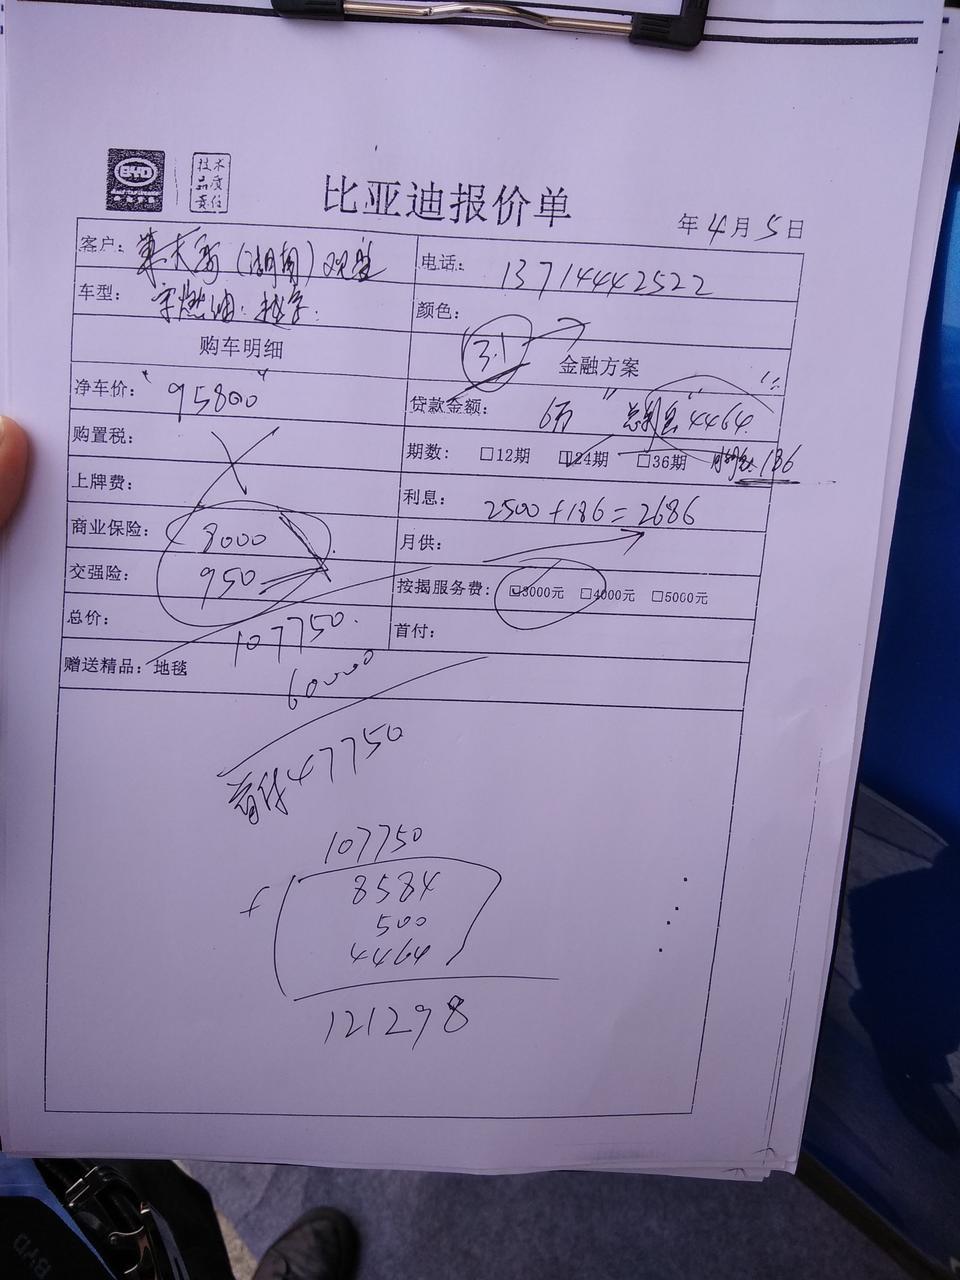 BYD
技术
品质
责任
比亚迪报价单
年4月5日
客户：
电话：13714442522
车型：宋燃油
颜色：
购车明细
3.1
金融方案
净车价："95800"
贷款金额：6万 "总利息"4464
购置税：
期数：□12期 ☑24期 □36期 186
上牌费：
利息：2500+186=2686
商业保险：8000
月供：
交强险：950
按揭服务费：☑3000元 □4000元 □5000元
总价：107750
首付：
赠送精品：地毯
60000
首付47750
107750
+ 8584
500
4464
121298
BYD